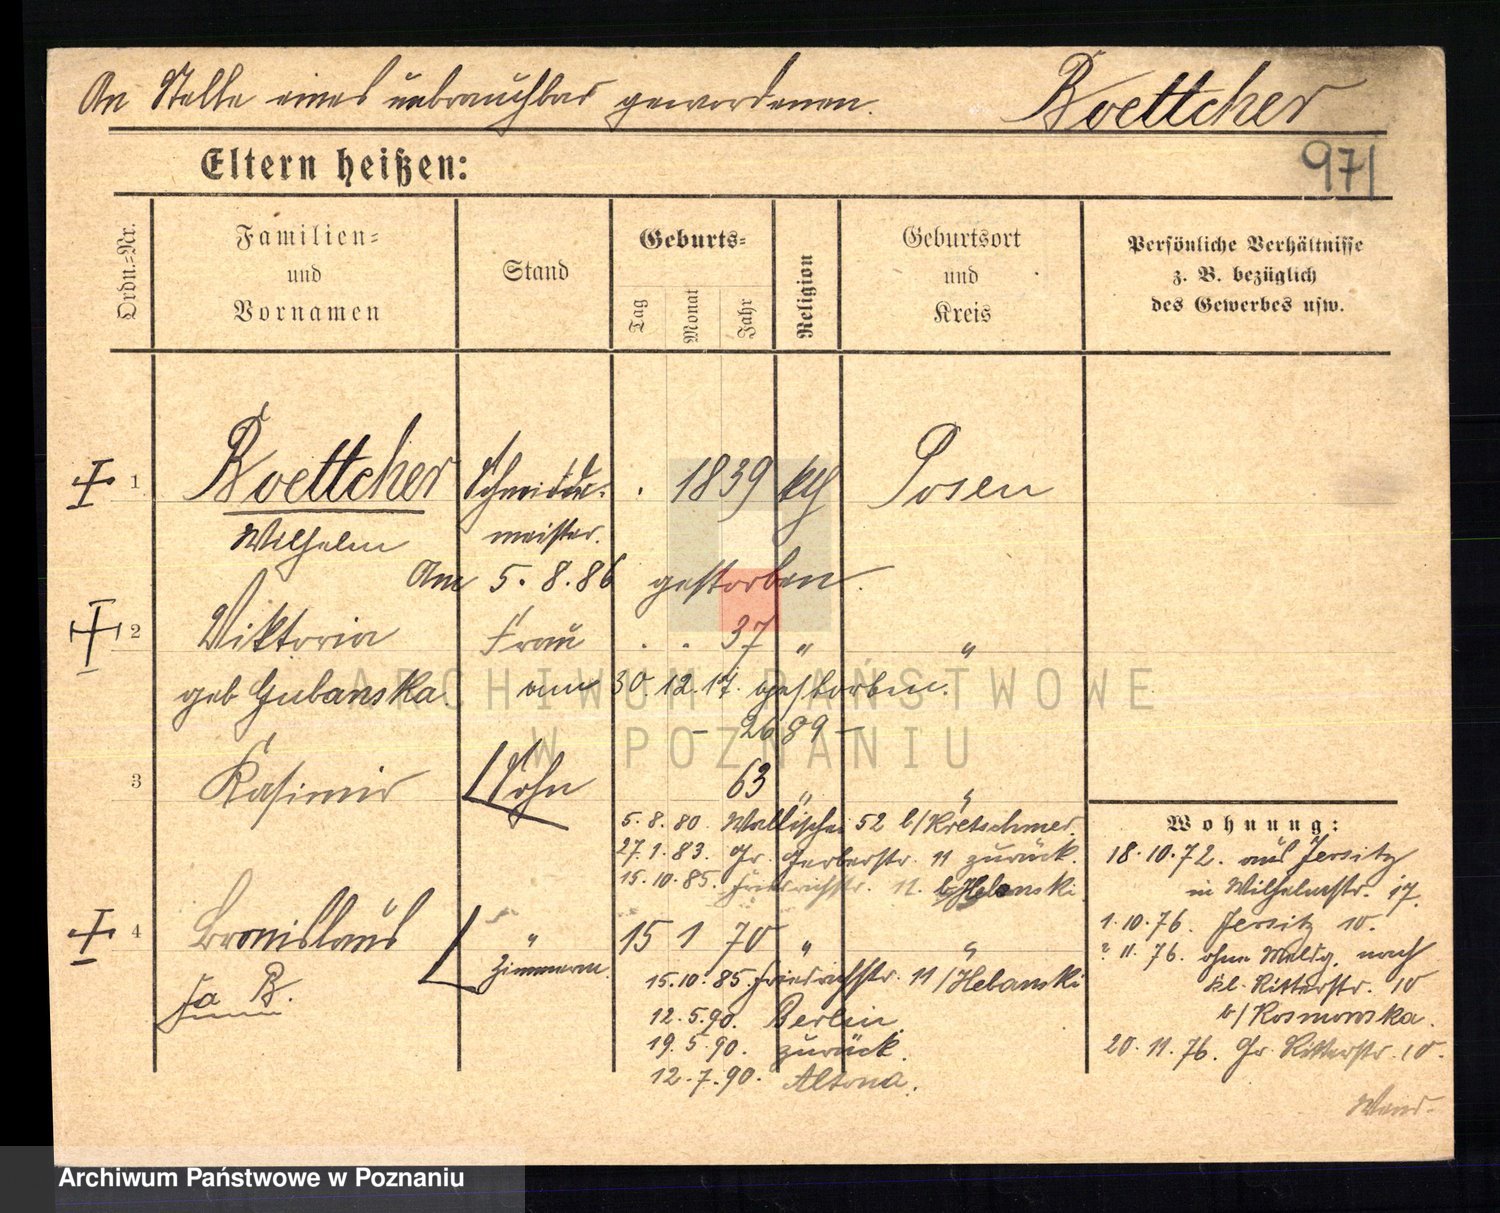 An Stelle eines unbrauchbar gewordenen. Boettcher
Eltern heißen: 971
Ordn.-Nr.
Familien-
und
Vornamen
Stand
Geburts-
Tag
Monat
Jahr
Religion
Geburtsort
und
Kreis
Persönliche Verhältnisse
z. B. bezüglich
des Gewerbes usw.
1 Boettcher Schneider- 1839 kth Posen
Wilhelm meister.
Am 5. 8. 86 gestorben.
2 Viktoria Frau . . 37 " "
geb Gubanska. am 30. 12. 17. gestorben.
- 2689 -
3 Kasimir Sohn 63 " "
5. 8. 80. Wallischei 52 b/Kretschmer.
27. 1. 83. Gr. Gerberstr. 11 zurück.
15. 10. 85. Friedrichstr. 11. b/Helanski
4 Bronislaus " 15 1 70 " "
sa B. Zimmerm.
15. 10. 85. Friedrichstr. 11/Helanski
12. 5. 90. Berlin.
19. 5. 90. zurück.
12. 7. 90. Altona.
Wohnung:
18. 10. 72. aus Jersitz
in Wilhelmstr. 17.
1. 10. 76. Jersitz 10.
? 11. 76. ohne Meldg. nach
kl. Ritterstr. 10
b/Rosmowska.
20. 11. 76. Gr. Ritterstr. 10.
Wend-
ARCHIWUM PAŃSTWOWE
W POZNANIU
Archiwum Państwowe w Poznaniu